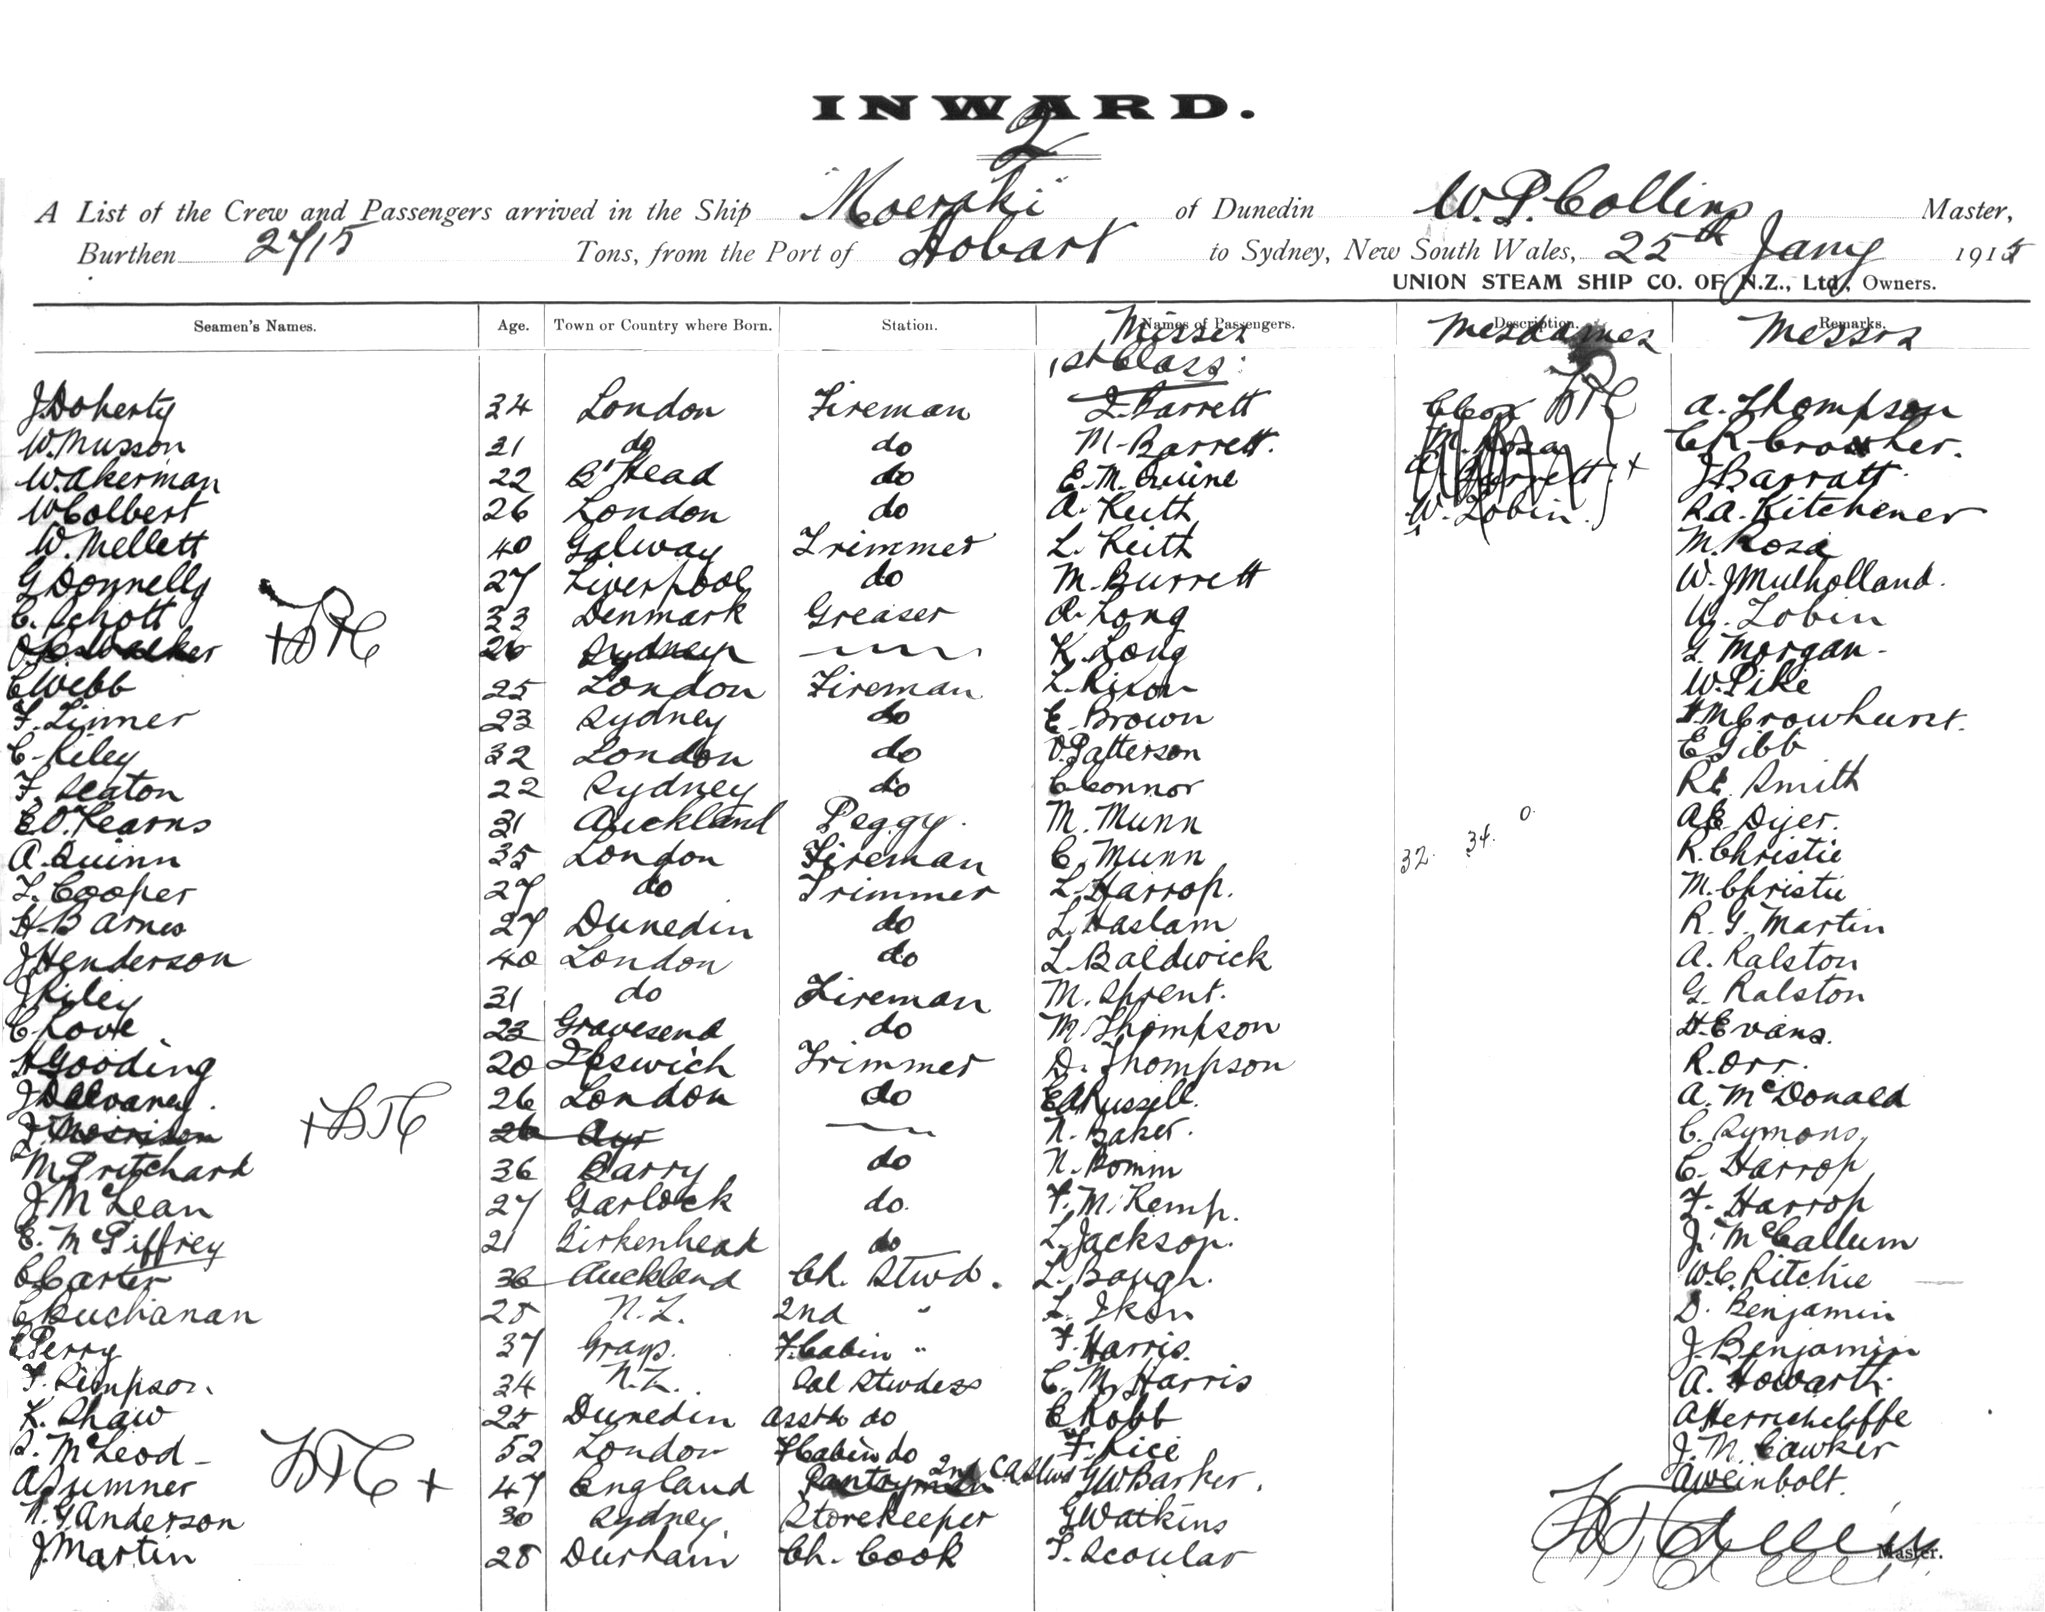 INWARD.
2
A List of the Crew and Passengers arrived in the Ship "Moeraki" of Dunedin W. P. Collins Master,
Burthen 2715 Tons, from the Port of Hobart to Sydney, New South Wales, 25th Jany 1915
UNION STEAM SHIP CO. OF N.Z., Ltd., Owners.
Seamen's Names. Age. Town or Country where Born. Station. Names of Passengers. Description. Remarks.
Misses Mesdames Messrs
1st Class:
J Doherty 24 London Fireman I. Barrett A. Thompson
W. Musson 21 do do M. Barrett. M. Rosa C R Crowther.
W. Akerman 22 B'Head do E. M. Quine Garrett + J Barratt
W Colbert 26 London do A. Keith W. Tobin R A. Kitchener
W. Mellett 40 Galway Trimmer L. Keith M. Rosa
G Donnelly 27 Liverpool do M. Burrett W. J Mulholland.
C. Schott 33 Denmark Greaser A. Long W. Tobin
Walker 26 Sydney K. Long G. Morgan
C Webb 25 London Fireman L. Rixon W. Pike
F. Linner 23 Sydney do E. Brown H M Crowhurst.
C. Riley 32 London do O. Patterson E Gibb
F. Seaton 22 Sydney do C Connor R E. Smith
E O. Kearns 31 Auckland Peggy. M. Munn 0. A E Dyer.
A. Quinn 35 London Fireman C. Munn 32. 34. R. Christie
L. Cooper 27 do Trimmer L. Harrop. M. Christie
H. Barnes 27 Dunedin do L. Haslam R. G. Martin
J Henderson 40 London do L. Baldwick A. Ralston
J Riley 31 do Fireman M. Sprent. G. Ralston
C. Love 23 Gravesend do M. Thompson H. Evans.
H Gooding 20 Ipswich Trimmer D. Thompson R. Orr.
J Delvaney. 26 London do E A Russell. A. McDonald
J. Morrison 26 Ayr N. Baker. C. Symons.
M. Pritchard 36 Barry do N. Bomm C. Harrop
J McLean 27 Garlock do. F. M. Kemp. F. Harrop
E. McPiffrey 21 Birkenhead do L. Jackson. J. McCallum
C Carter 36 Auckland Ch. Stwd. L. Bough. W. C. Ritchie
C Buchanan 28 N.Z. 2nd " L. Ikon D. Benjamin
E Perry 37 Grays. F. Cabin " F. Harris. J. Benjamin
F. Simpson. 34 N.Z. Sal Stwdess C. M. Harris A. Howarth
K. Shaw 25 Dunedin Asst do E Robb A Herrickcliffe
S. McLeod 52 London F Cabin do F. Rice J. N. Cawker
A Sumner + 47 England Pantryman 2nd G W. Barker. A Weinbolt.
N. G. Anderson 30 Sydney Storekeeper G Watkins
J. Martin 28 Durham Ch. Cook T. Scoular
Master.